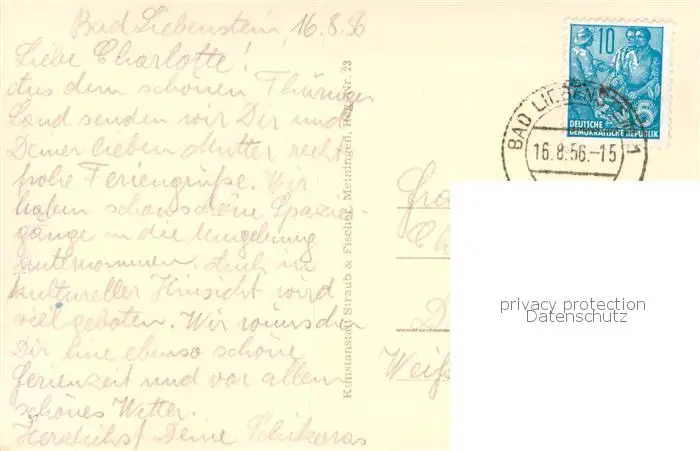 Bad Liebenstein, 16.8.56
Liebe Charlotte!
Aus dem schönen Thüringer
Land senden wir Dir und
Deiner lieben Mutter recht
frohe Feriengrüße. Wir
haben schon schöne Spazier-
gänge in die Umgebung
unternommen. Auch in
kultureller Hinsicht wird
viel geboten. Wir wünschen
Dir eine ebenso schöne
Ferienzeit und vor allem
schönes Wetter.
Herzlichst Deine
Kunstanstalt Straub & Fischer, Meiningen, Reg.-Nr. 23
10
DEUTSCHE
DEMOKRATISCHE REPUBLIK
BAD LIEBENSTEIN
16.8.56.-15
Weiß
privacy protection
Datenschutz